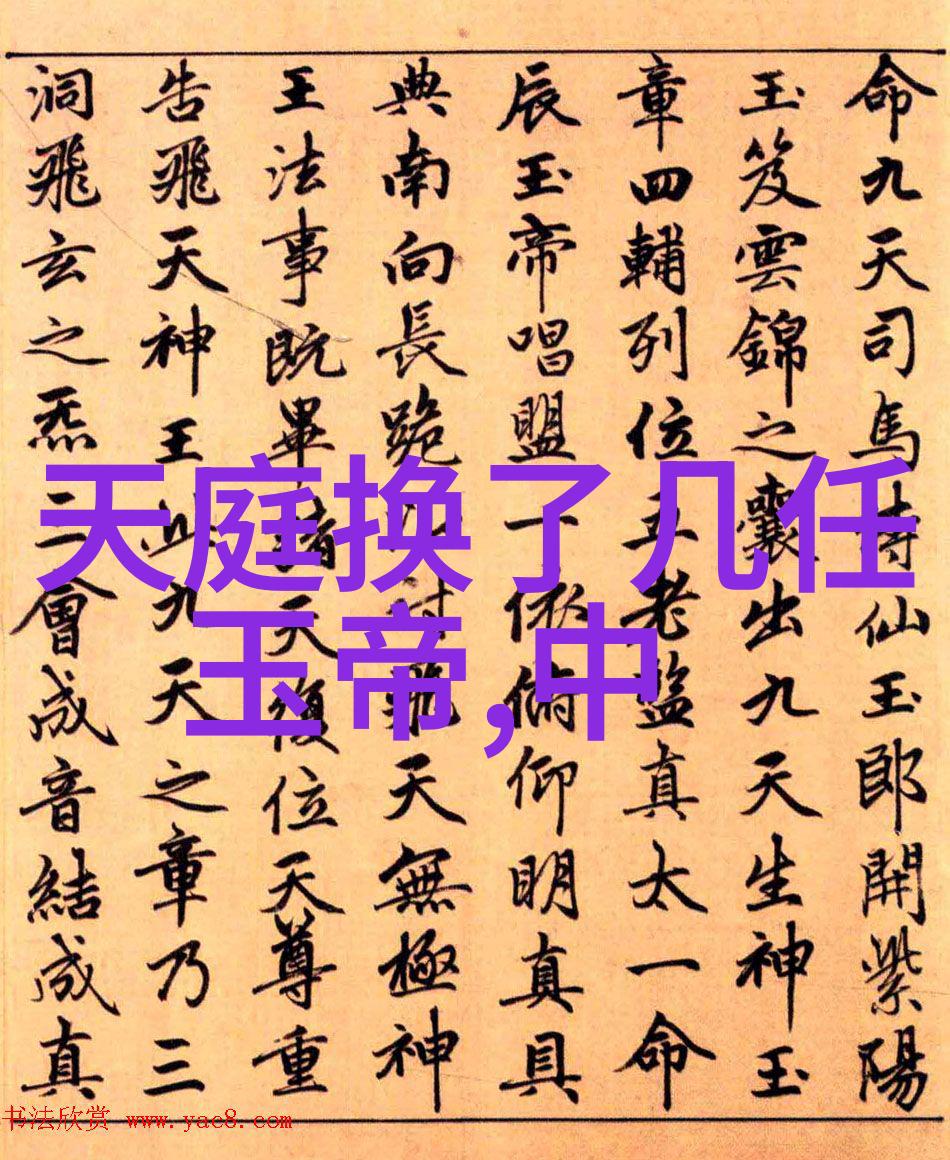 命九天司馬侍仙玉郎開紫陽
玉笈雲錦之囊出九天生神玉
章四輔列位五老監真太一命
辰玉帝唱盟十依俯仰明真具
典南向長跪付飛天無極神
王法事既畢諸天復位天尊重
告飛天神王此九天之章乃三
洞飛玄之炁三會成音結成真
天庭换了几任
玉帝,中
书法欣赏 www.yac8.com